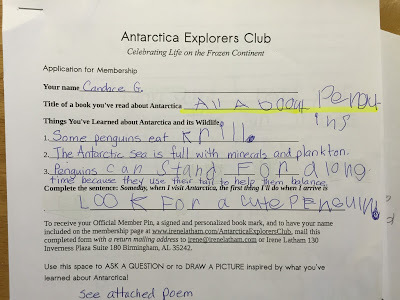 Antarctica Explorers Club
Celebrating Life on the Frozen Continent
Application for Membership
Your name Candace G.
Title of a book you've read about Antarctica All About Pengu
ins
Things You've Learned about Antarctica and its Wildlife
1. Some penguins eat krill.
2. The Antarctic sea is full with minerals and plankton.
3. Penguins can stand For a long
time because they use their tail to help them balance.
Complete the sentence: Someday, when I visit Antarctica, the first thing I'll do when I arrive is
LOOK For a cute PENGUIN.
To receive your Official Member Pin, a signed and personalized book mark, and to have your name
included on the membership page at www.irenelatham.com/AntarcticaExplorersClub, mail this
completed form with a return mailing address to irene@irenelatham.com or Irene Latham 130
Inverness Plaza Suite 180 Birmingham, AL 35242.
Use this space to ASK A QUESTION or to DRAW A PICTURE inspired by what you've
learned about Antarctica!
see attached poem